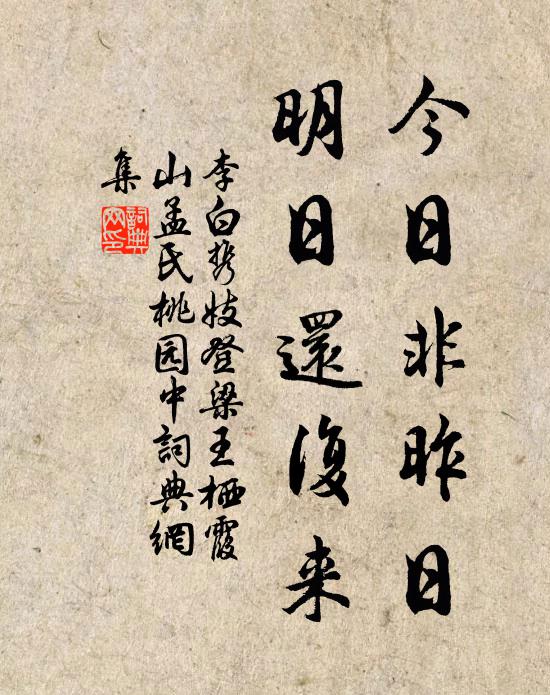 今日非昨日
明日還復来
李白携妓登梁王栖霞
山孟氏桃园中詞典網
集
詞典網印